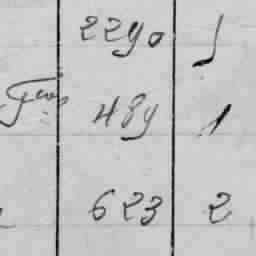 2290 1
489 1
623 2